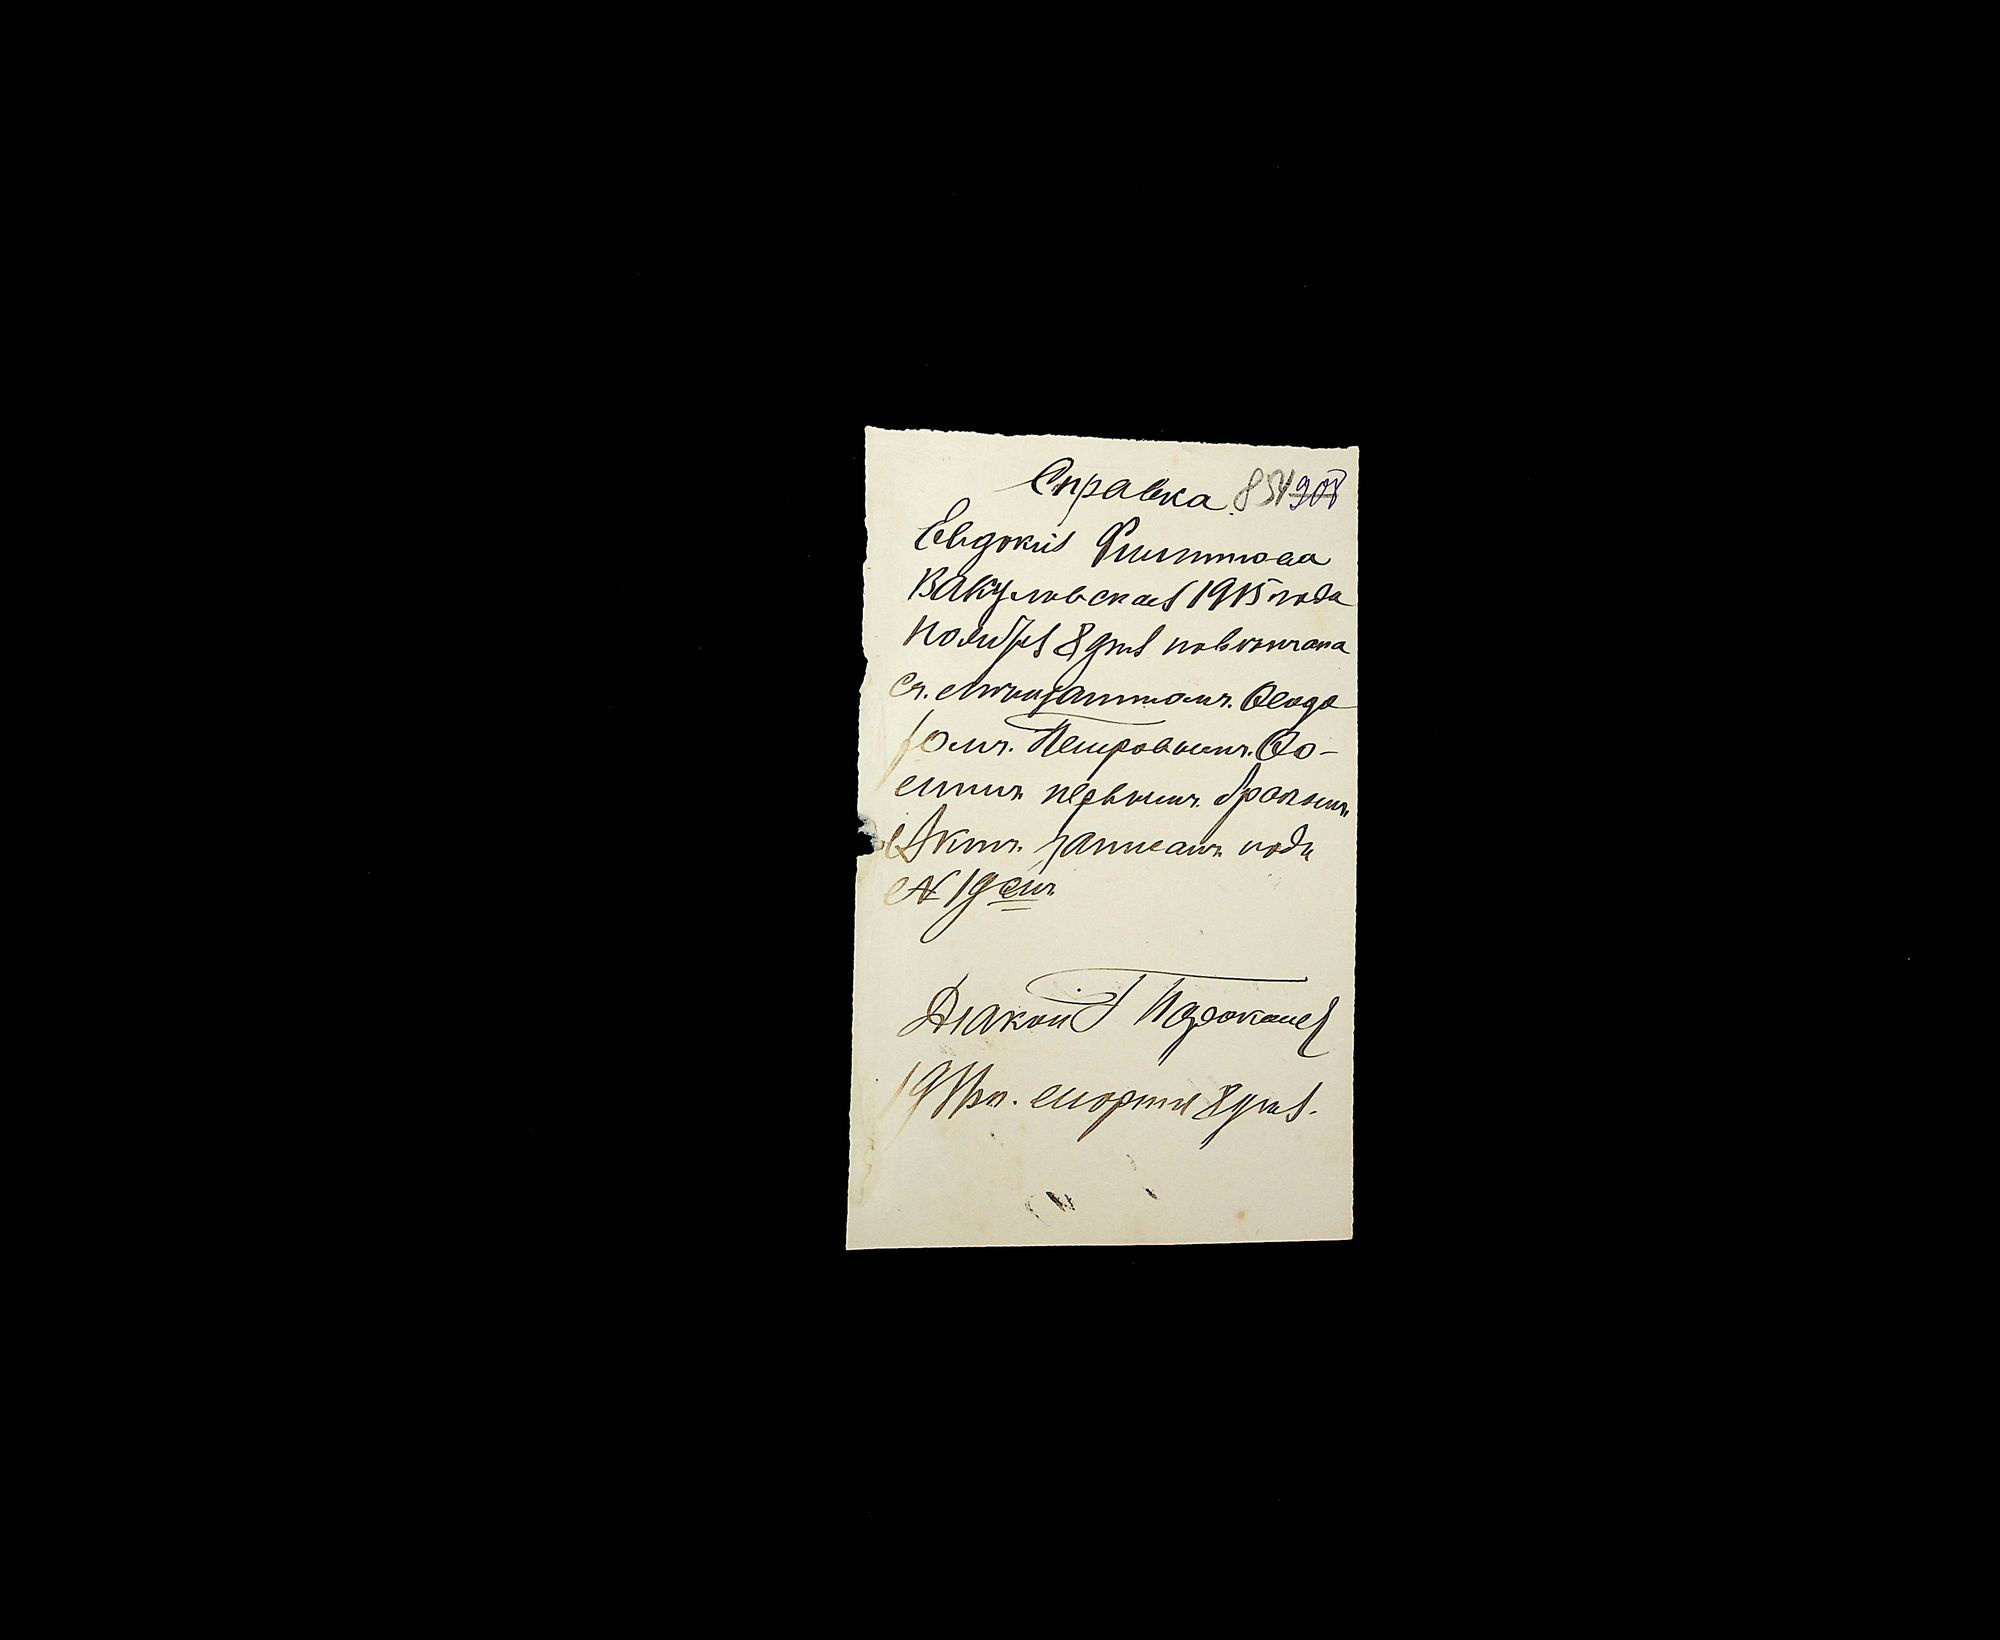 Справка. 854 908
Евдокія Филиппова
Вакуловская 1915 года
Ноября 8 дня повѣнчана
съ Ѳеодо
ромъ Петровымъ Ѳо-
минъ первымъ бракомъ
Актъ записанъ подъ
№ 19 емъ
Діаконъ
марта 8 дня.